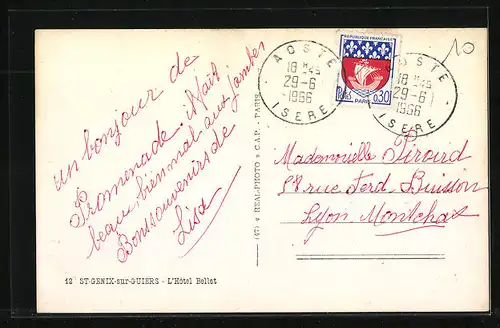 un bonjour de
Promenade. Mais
beau bien mal aux jambes
Bons souvenirs de
Lisa
12 ST-GENIX-sur-GUIERS - L'Hôtel Bellet
(47) REAL-PHOTO C.A.P. - PARIS
AOSTE
18 H 45
29-6
1966
ISERE
REPUBLIQUE FRANÇAISE
0,30
PARIS
AOSTE
18 H 45
29-6
1966
ISERE
10
Mademoiselle Girard
58 rue Ferd. Buisson
Lyon-Montchat